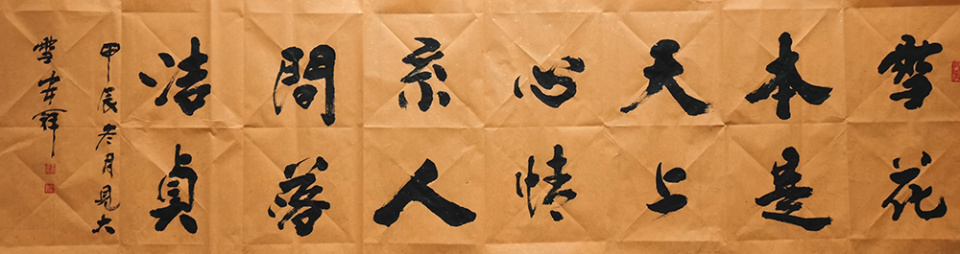 雪花
本是
天上
心情
系人
間落
洁贞
甲辰冬月見大
雪